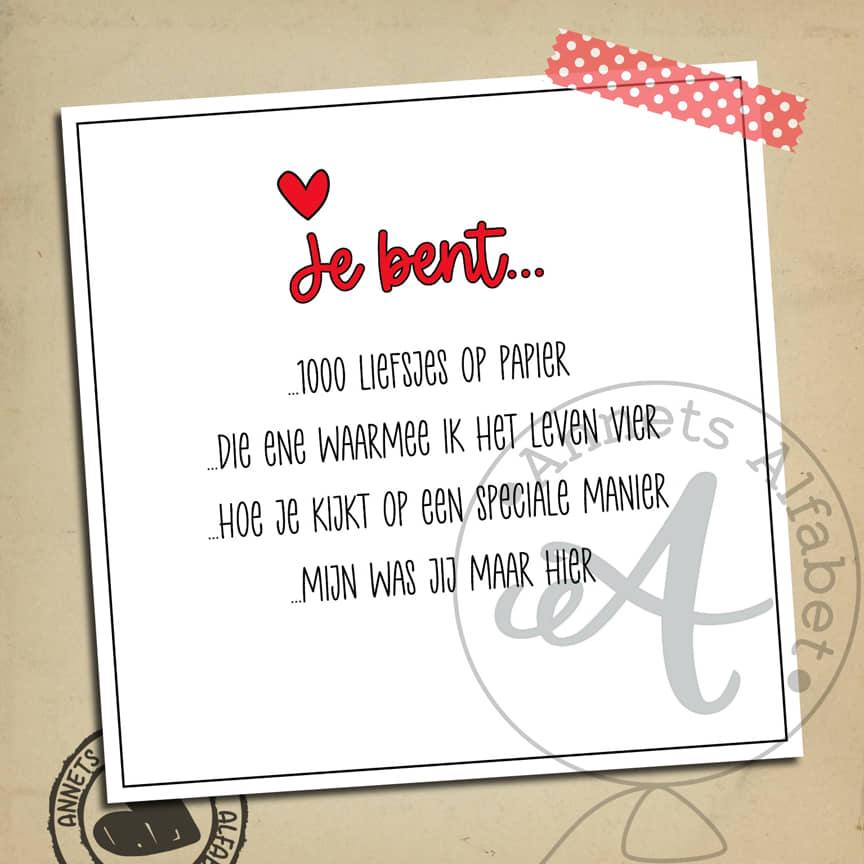 Je bent...
...1000 liefsjes op papier
...die ene waarmee ik het leven vier
...hoe je kijkt op een speciale manier
...mijn was jij maar hier
Annets Alfabet
A
ANNETS
ALFA